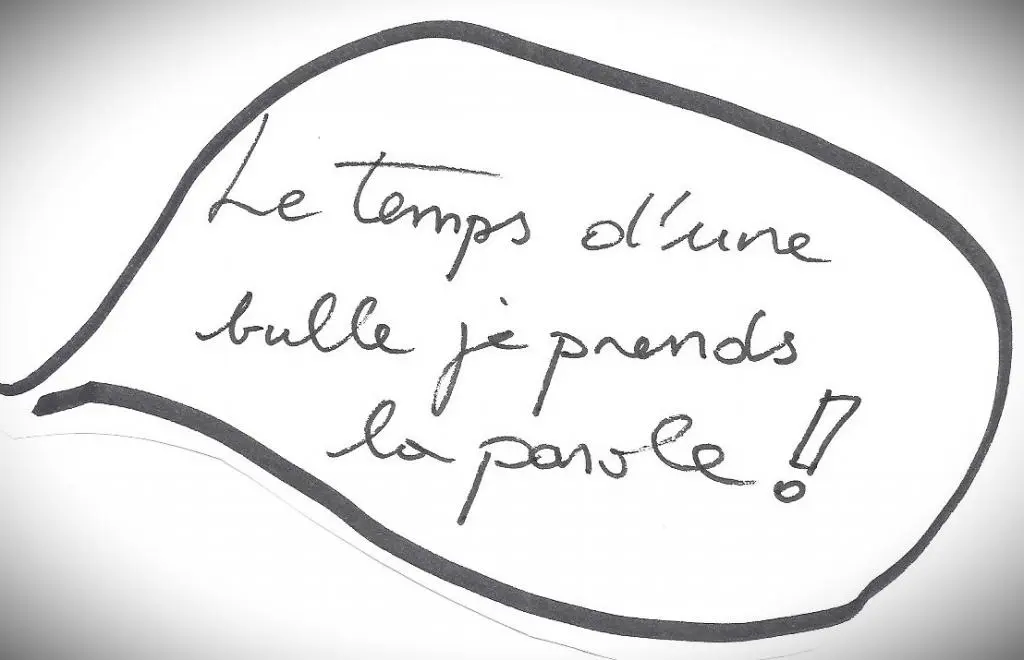 Le temps d'une
bulle je prends
la parole !